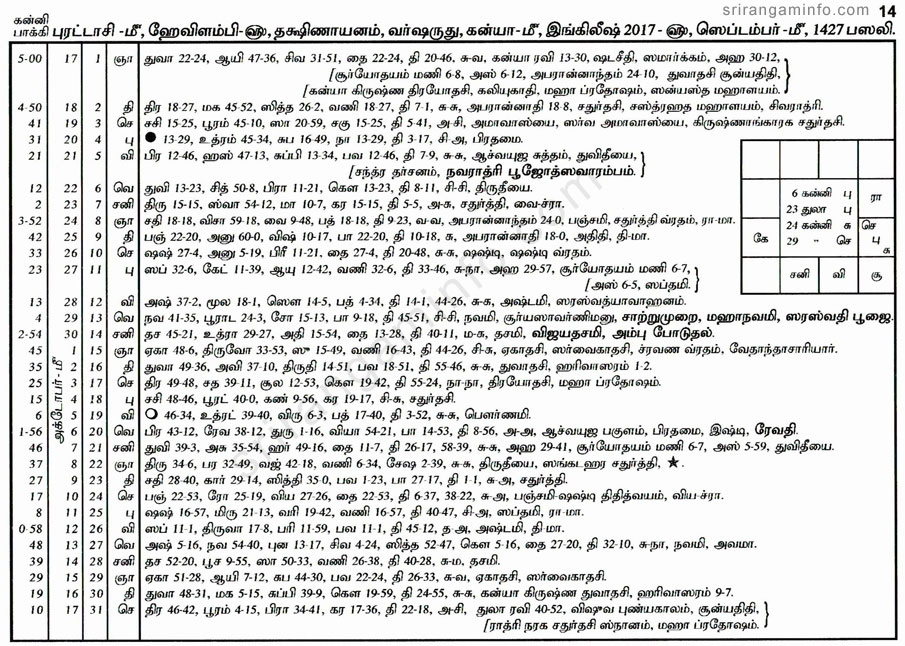 srirangaminfo.com 14
கன்னி
பாக்கி புரட்டாசி -மீ, ஹேவிளம்பி-௵, தக்ஷிணாயனம், வர்ஷருது, கன்யா-மீ, இங்கிலீஷ் 2017 - ௵, ஸெப்டம்பர் -மீ, 1427 பஸலி.
5-00 17 1 ஞா துவா 22-24, ஆயி 47-36, சிவ 31-51, தை 22-24, தி 20-46, சு-வ, கன்யா ரவி 13-30, ஷடசீதி, ஸமார்க்கம், அஹ 30-12,
[சூர்யோதயம் மணி 6-8, அஸ் 6-12, அபரான்னாந்தம் 24-10, துவாதசி சூன்யதிதி,
[கன்யா கிருஷ்ண திரயோதசி, கலியுகாதி, மஹா ப்ரதோஷம், ஸன்யஸ்த மஹாளயம்.
4-50 18 2 தி திர 18-27, மக 45-52, ஸித்த 26-2, வணி 18-27, தி 7-1, சு-சு, அபரான்னாதி 18-8, சதுர்தசி, சஸ்த்ரஹத மஹாளயம், சிவராத்ரி.
41 19 3 செ சசி 15-25, பூரம் 45-10, ஸா 20-59, சகு 15-25, தி 5-41, அ-சி, அமாவாஸ்யை, ஸர்வ அமாவாஸ்யை, கிருஷ்ணாங்காரக சதுர்தசி.
31 20 4 பு ● 13-29, உத்ரம் 45-34, சுப 16-49, நா 13-29, தி 3-17, சி-அ, பிரதமை.
21 21 5 வி பிர 12-46, ஹஸ் 47-13, சுப்பி 13-34, பவ 12-46, தி 7-9, சு-சு, ஆச்வயுஜ சுத்தம், துவிதீயை,
[சந்த்ர தர்சனம், நவராத்ரி பூஜோத்ஸவாரம்பம்.
12 22 6 வெ துவி 13-23, சித் 50-8, பிரா 11-21, கௌ 13-23, தி 8-11, சி-சி, திருதீயை.
2 23 7 சனி திரு 15-15, ஸ்வா 54-12, மா 10-7, கர 15-15, தி 5-5, அ-சு, சதுர்த்தி, வை-ச்ரா.
3-52 24 8 ஞா சதி 18-18, விசா 59-18, வை 9-48, பத் 18-18, தி 9-23, வ-வ, அபரான்னாந்தம் 24-0, பஞ்சமி, சதுர்த்தி வ்ரதம், ரா-மா.
42 25 9 தி பஞ் 22-20, அனு 60-0, விஷ் 10-17, பா 22-20, தி 10-18, சு, அபரான்னாதி 18-0, அதிதி, தி-மா.
33 26 10 செ ஷஷ் 27-4, அனு 5-19, பிரீ 11-21, தை 27-4, தி 20-48, சு-சு, ஷஷ்டி, ஷஷ்டி வ்ரதம்.
23 27 11 பு ஸப் 32-6, கேட் 11-39, ஆயு 12-42, வணி 32-6, தி 33-46, சு-நா, அஹ 29-57, சூர்யோதயம் மணி 6-7,
[அஸ் 6-5, ஸப்தமி.
6 கன்னி பு
23 துலா பு
24 கன்னி சு
29 " செ
ரா
கே
செ
பு
சு
சனி வி சூ
13 28 12 வி அஷ் 37-2, மூல 18-1, ஸௌ 14-5, பத் 4-34, தி 14-1, 44-26, சு-சு, அஷ்டமி, ஸரஸ்வத்யாவாஹனம்.
4 29 13 வெ நவ 41-35, பூராட 24-3, சோ 15-13, பா 9-18, தி 45-51, சி-சி, நவமி, சூர்யஸாவர்ணிமனு, சாற்றுமுறை, மஹாநவமி, ஸரஸ்வதி பூஜை.
2-54 30 14 சனி தச 45-21, உத்ரா 29-27, அதி 15-54, தை 13-28, தி 40-11, ம-சு, தசமி, விஜயதசமி, அம்பு போடுதல்.
அக்டோபர் - மீ
45 1 15 ஞா ஏகா 48-6, திருவோ 33-53, ஸு 15-49, வணி 16-43, தி 44-26, சி-சு, ஏகாதசி, ஸர்வைகாதசி, ச்ரவண வ்ரதம், வேதாந்தாசாரியார்.
35 2 16 தி துவா 49-36, அவி 37-10, திருதி 14-51, பவ 18-51, தி 55-46, சு-சு, துவாதசி, ஹரிவாஸரம் 1-2.
25 3 17 செ திர 49-48, சத 39-11, சூல 12-53, கௌ 19-42, தி 55-24, நா-நா, திரயோதசி, மஹா ப்ரதோஷம்.
15 4 18 பு சசி 48-46, பூரட் 40-0, கண் 9-56, கர 19-17, சி-சு, சதுர்தசி.
6 5 19 வி ○ 46-34, உத்ரட் 39-40, விரு 6-3, பத் 17-40, தி 3-52, சு-சு, பௌர்ணமி.
1-56 6 20 வெ பிர 43-12, ரேவ 38-12, துரு 1-16, வியா 54-21, பா 14-53, தி 8-56, அ-அ, ஆச்வயுஜ பகுளம், பிரதமை, இஷ்டி, ரேவதி.
46 7 21 சனி துவி 39-3, அசு 35-54, ஹர் 49-16, தை 11-7, தி 26-17, 58-39, சு-சு, அஹ 29-41, சூர்யோதயம் மணி 6-7, அஸ் 5-59, துவிதீயை.
37 8 22 ஞா திரு 34-6, பர 32-49, வஜ் 42-18, வணி 6-34, சேஷ 2-39, சு-சு, திருதீயை, ஸங்கடஹர சதுர்த்தி, ★.
27 9 23 தி சதி 28-40, கார் 29-14, ஸித்தி 35-0, பவ 1-23, பா 27-17, தி 1-1, சு-அ, சதுர்த்தி.
17 10 24 செ பஞ் 22-53, ரோ 25-19, விய 27-26, தை 22-53, தி 6-37, 38-22, சு-அ, பஞ்சமி-ஷஷ்டி திதித்வயம், விய-ச்ரா.
8 11 25 பு ஷஷ் 16-57, மிரு 21-13, வரி 19-42, வணி 16-57, தி 40-47, சி-அ, ஸப்தமி, ரா-மா.
0-58 12 26 வி ஸப் 11-1, திருவா 17-8, பரி 11-59, பவ 11-1, தி 45-12, த-அ, அஷ்டமி, தி-மா.
48 13 27 வெ அஷ் 5-16, நவ 54-40, புன 13-17, சிவ 4-24, ஸித்த 52-47, கௌ 5-16, தை 27-20, தி 32-10, சு-நா, நவமி, அவமா.
39 14 28 சனி தச 52-20, பூச 9-55, ஸா 50-33, வணி 26-38, தி 40-28, சு-ம, தசமி.
29 15 29 ஞா ஏகா 51-28, ஆயி 7-12, சுப 44-30, பவ 22-24, தி 26-33, சு-வ, ஏகாதசி, ஸர்வைகாதசி.
19 16 30 தி துவா 48-31, மக 5-15, சுப்பி 39-9, கௌ 19-59, தி 24-55, சு-சு, கன்யா கிருஷ்ண துவாதசி, ஹரிவாஸரம் 9-7.
10 17 31 செ திர 46-42, பூரம் 4-15, பிரா 34-41, கர 17-36, தி 22-18, அ-சி, துலா ரவி 40-52, விஷுவ புண்யகாலம், சூன்யதிதி,
[ராத்ரி நரக சதுர்தசி ஸ்நானம், மஹா ப்ரதோஷம்.